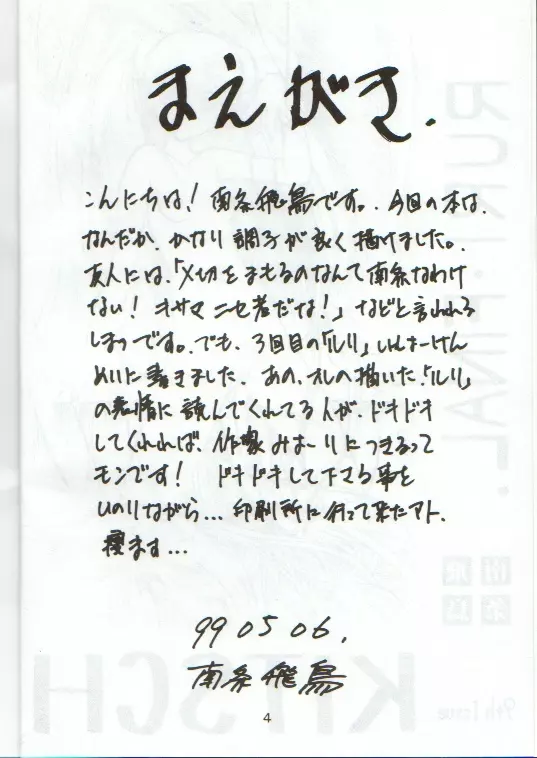 まえがき.
こんにちは! 南条飛鳥です。今回の本は、
なんだか、かなり調子が良く描けました。
友人には、「〆切をまもるのなんて南条なわけ
ない! キサマニセ者だな!」などと言われる
しまつです。でも、3回目の「ルリ」しんけん
めいに書きました。あの、オレの描いた「ルリ」
の表情に読んでくれてる人が、ドキドキ
してくれれば、作家みょーりにつきるって
モンです! ドキドキして下さる事を
いのりながら...印刷所に行って来たアト、
寝ます...
99 05 06.
南条飛鳥
4
RURI・FINAL.
南条飛鳥
9th Issue
KITSCH